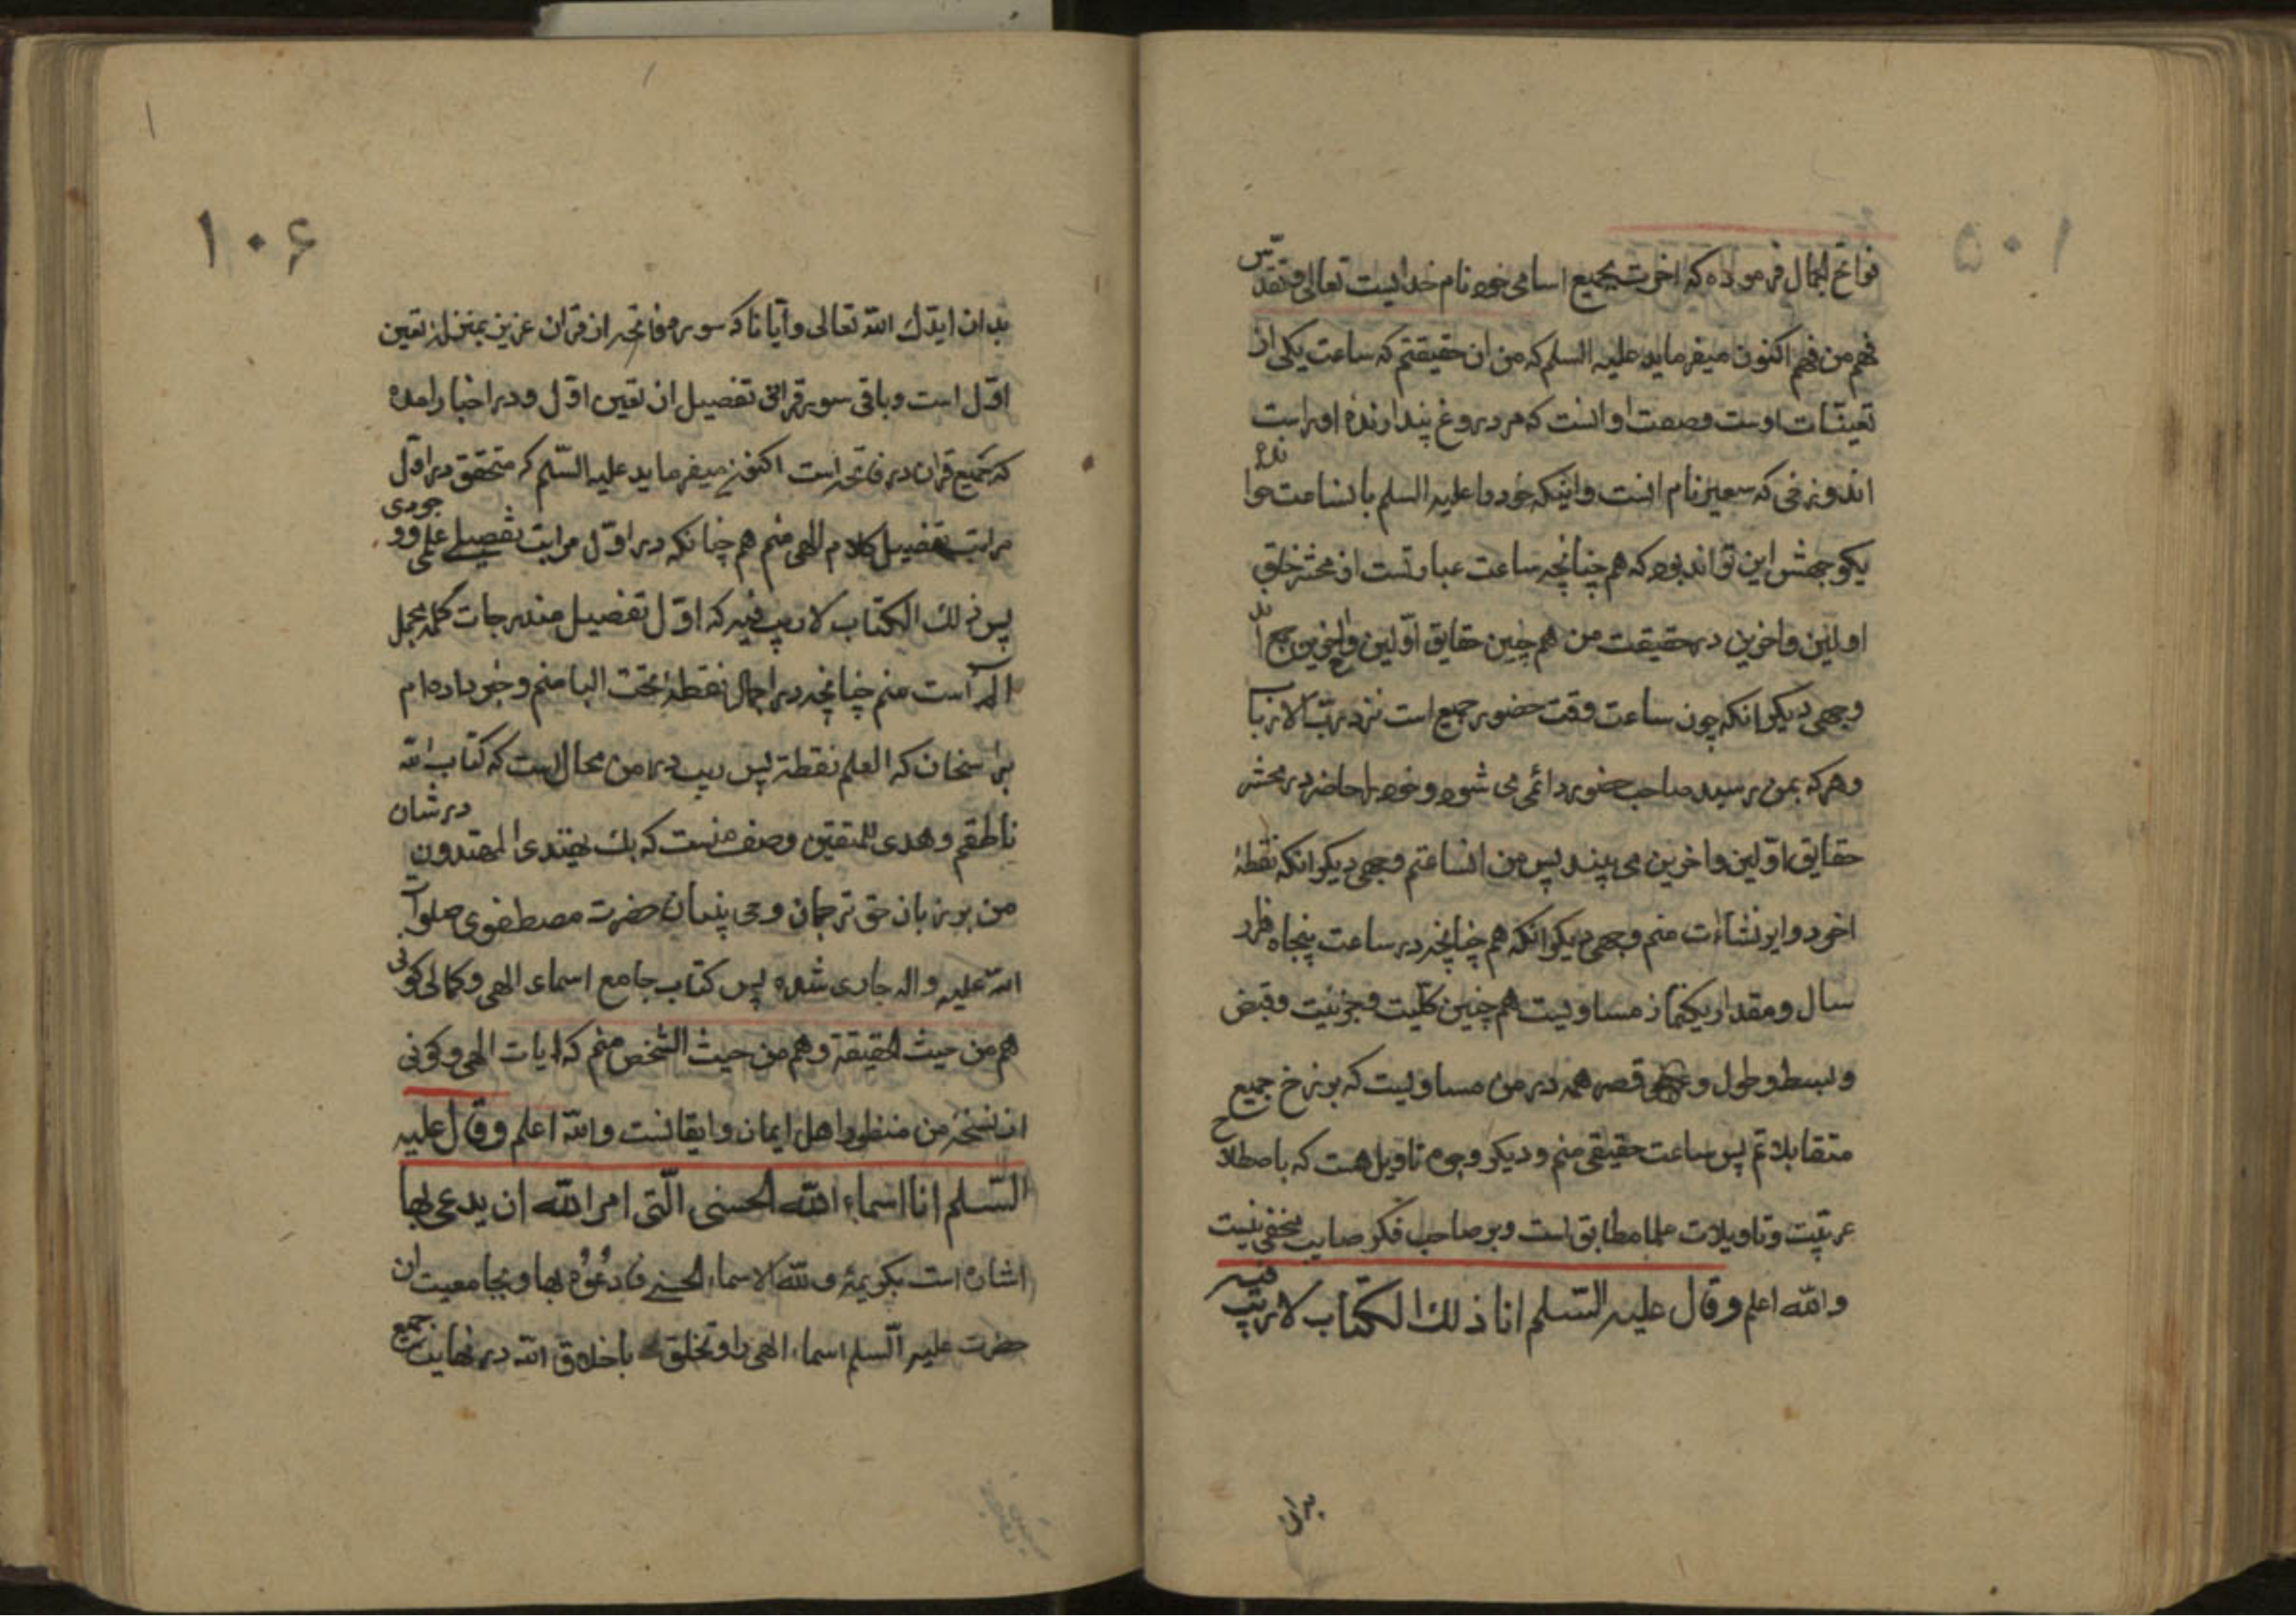 ۱۰۵
فواتح الجمال فرموده که اخرت بجمیع اسامی خود نام خدایست تعالی وتقدس
فهم من فهم اکنون میفرماید علیه السلم که من ان حقیقتم که ساعت یکی از
تعینات اوست وصفت او انست که مر دروغ پندارنده او راست
اند وزخی که سعیر نام انست واینکه خود را علیه السلم بالساعت خوانده
یکوجهش این تواند بود که هم چنانچه ساعت عبارتست از محشر خلق
اولین واخرین در حقیقت من هم چنین حقایق اولین واخرین جمع اند
وجهی دیگر انکه چون ساعت وقت حضور جمیع است نزد رب الارباب
وهرکه بمن رسید صاحب حضور دائمی می شود وخود را حاضر در محشر
حقایق اولین واخرین می بیند پس من الساعتم وجهی دیگر انکه نقطهٔ
اخر دوایر نشاءات منم وجهی دیگر انکه هم چنانچه در ساعت پنجاه هزار
سال ومقدار یکنماز مساویست هم چنین کلیت وجزئیت وقبض
وبسط وطول و قصر همه در من مساویست که برزخ جمیع
متقابلاتم پس ساعت حقیقی منم ودیگر وجوه تاویل هست که باصطلاح
عربیت وتاویلات علما مطابق است وبر صاحب فکر صایب مخفی نیست
والله اعلم وقال علیه السلم انا ذلك الکتاب لا ریب فیه
بدان
۱۰۶
بدان ایدك الله تعالی وایانا که سوره فاتحه از قران عزیز بمنزلهٔ تعین
اول است وباقی سور قرانی تفصیل ان تعین اول ودر اخبار امده
که جمیع قران در فاتحه است اکنون میفرماید علیه السلم که متحقق در اول
مراتب تفصیل کلام الهی منم هم چنانکه در اول مراتب تفصیلے علمی ووجودی
پس ذلك الکتاب لا ریب فیه که اول تفصیل مندرجات کلمهٔ مجمل
الم است منم چنانچه در اجمال نقطهٔ تحت البا منم وخبر داده ام
بر سخنان که العلم نقطة پس ریب در من محال است که کتاب الله
ناطقم وهدی للمتقین وصف منست که بك یهتدی المهتدون در شان
من بر زبان حق ترجمان وحی بنیان حضرت مصطفوی صلوات
الله علیه واله جاری شده پس کتاب جامع اسماء الهی وکمالی کونی
هم من حیث الحقیقة وهم من حیث الشخص منم که ایات الهی وکونی
از نسخهٔ من منظور اهل ایمان وایقانست والله اعلم وقال علیه
السلم انا اسماء الله الحسنی الّتی امر الله ان یدعی بها
اشاره است بکریمهٔ ولله الاسماء الحسنے فادعوه بها وبجامعیت ان
حضرت علیه السلم اسماء الهی را وتخلق باخلاق الله در نهایت جمیع